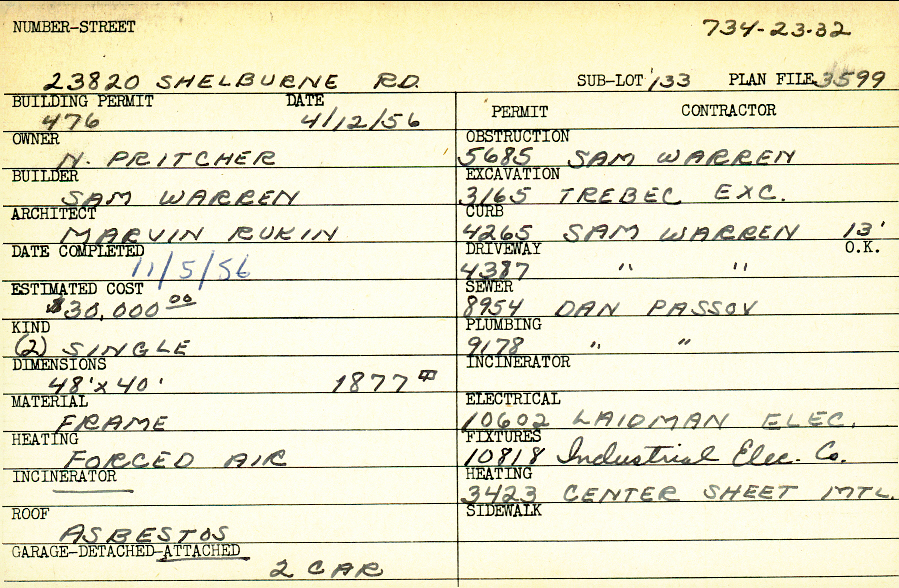 NUMBER-STREET 734-23-32
23820 SHELBURNE RD. SUB-LOT 133 PLAN FILE 3599
BUILDING PERMIT DATE
476 4/12/56
OWNER
N. PRITCHER
BUILDER
SAM WARREN
ARCHITECT
MARVIN RUKIN
DATE COMPLETED
11/5/56
ESTIMATED COST
$30,000.00
KIND
(2) SINGLE
DIMENSIONS
48'x40' 1877
MATERIAL
FRAME
HEATING
FORCED AIR
INCINERATOR
ROOF
ASBESTOS
GARAGE-DETACHED-ATTACHED
2 CAR
PERMIT CONTRACTOR
OBSTRUCTION
5685 SAM WARREN
EXCAVATION
3165 TREBEC EXC.
CURB
4265 SAM WARREN 13'
DRIVEWAY O.K.
4387 " "
SEWER
8954 DAN PASSOV
PLUMBING
9178 " "
INCINERATOR
ELECTRICAL
10602 LAIDMAN ELEC.
FIXTURES
10818 Industrial Elec. Co.
HEATING
3423 CENTER SHEET MTL.
SIDEWALK